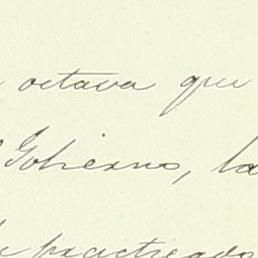 octava que
Gobierno, la
practicado